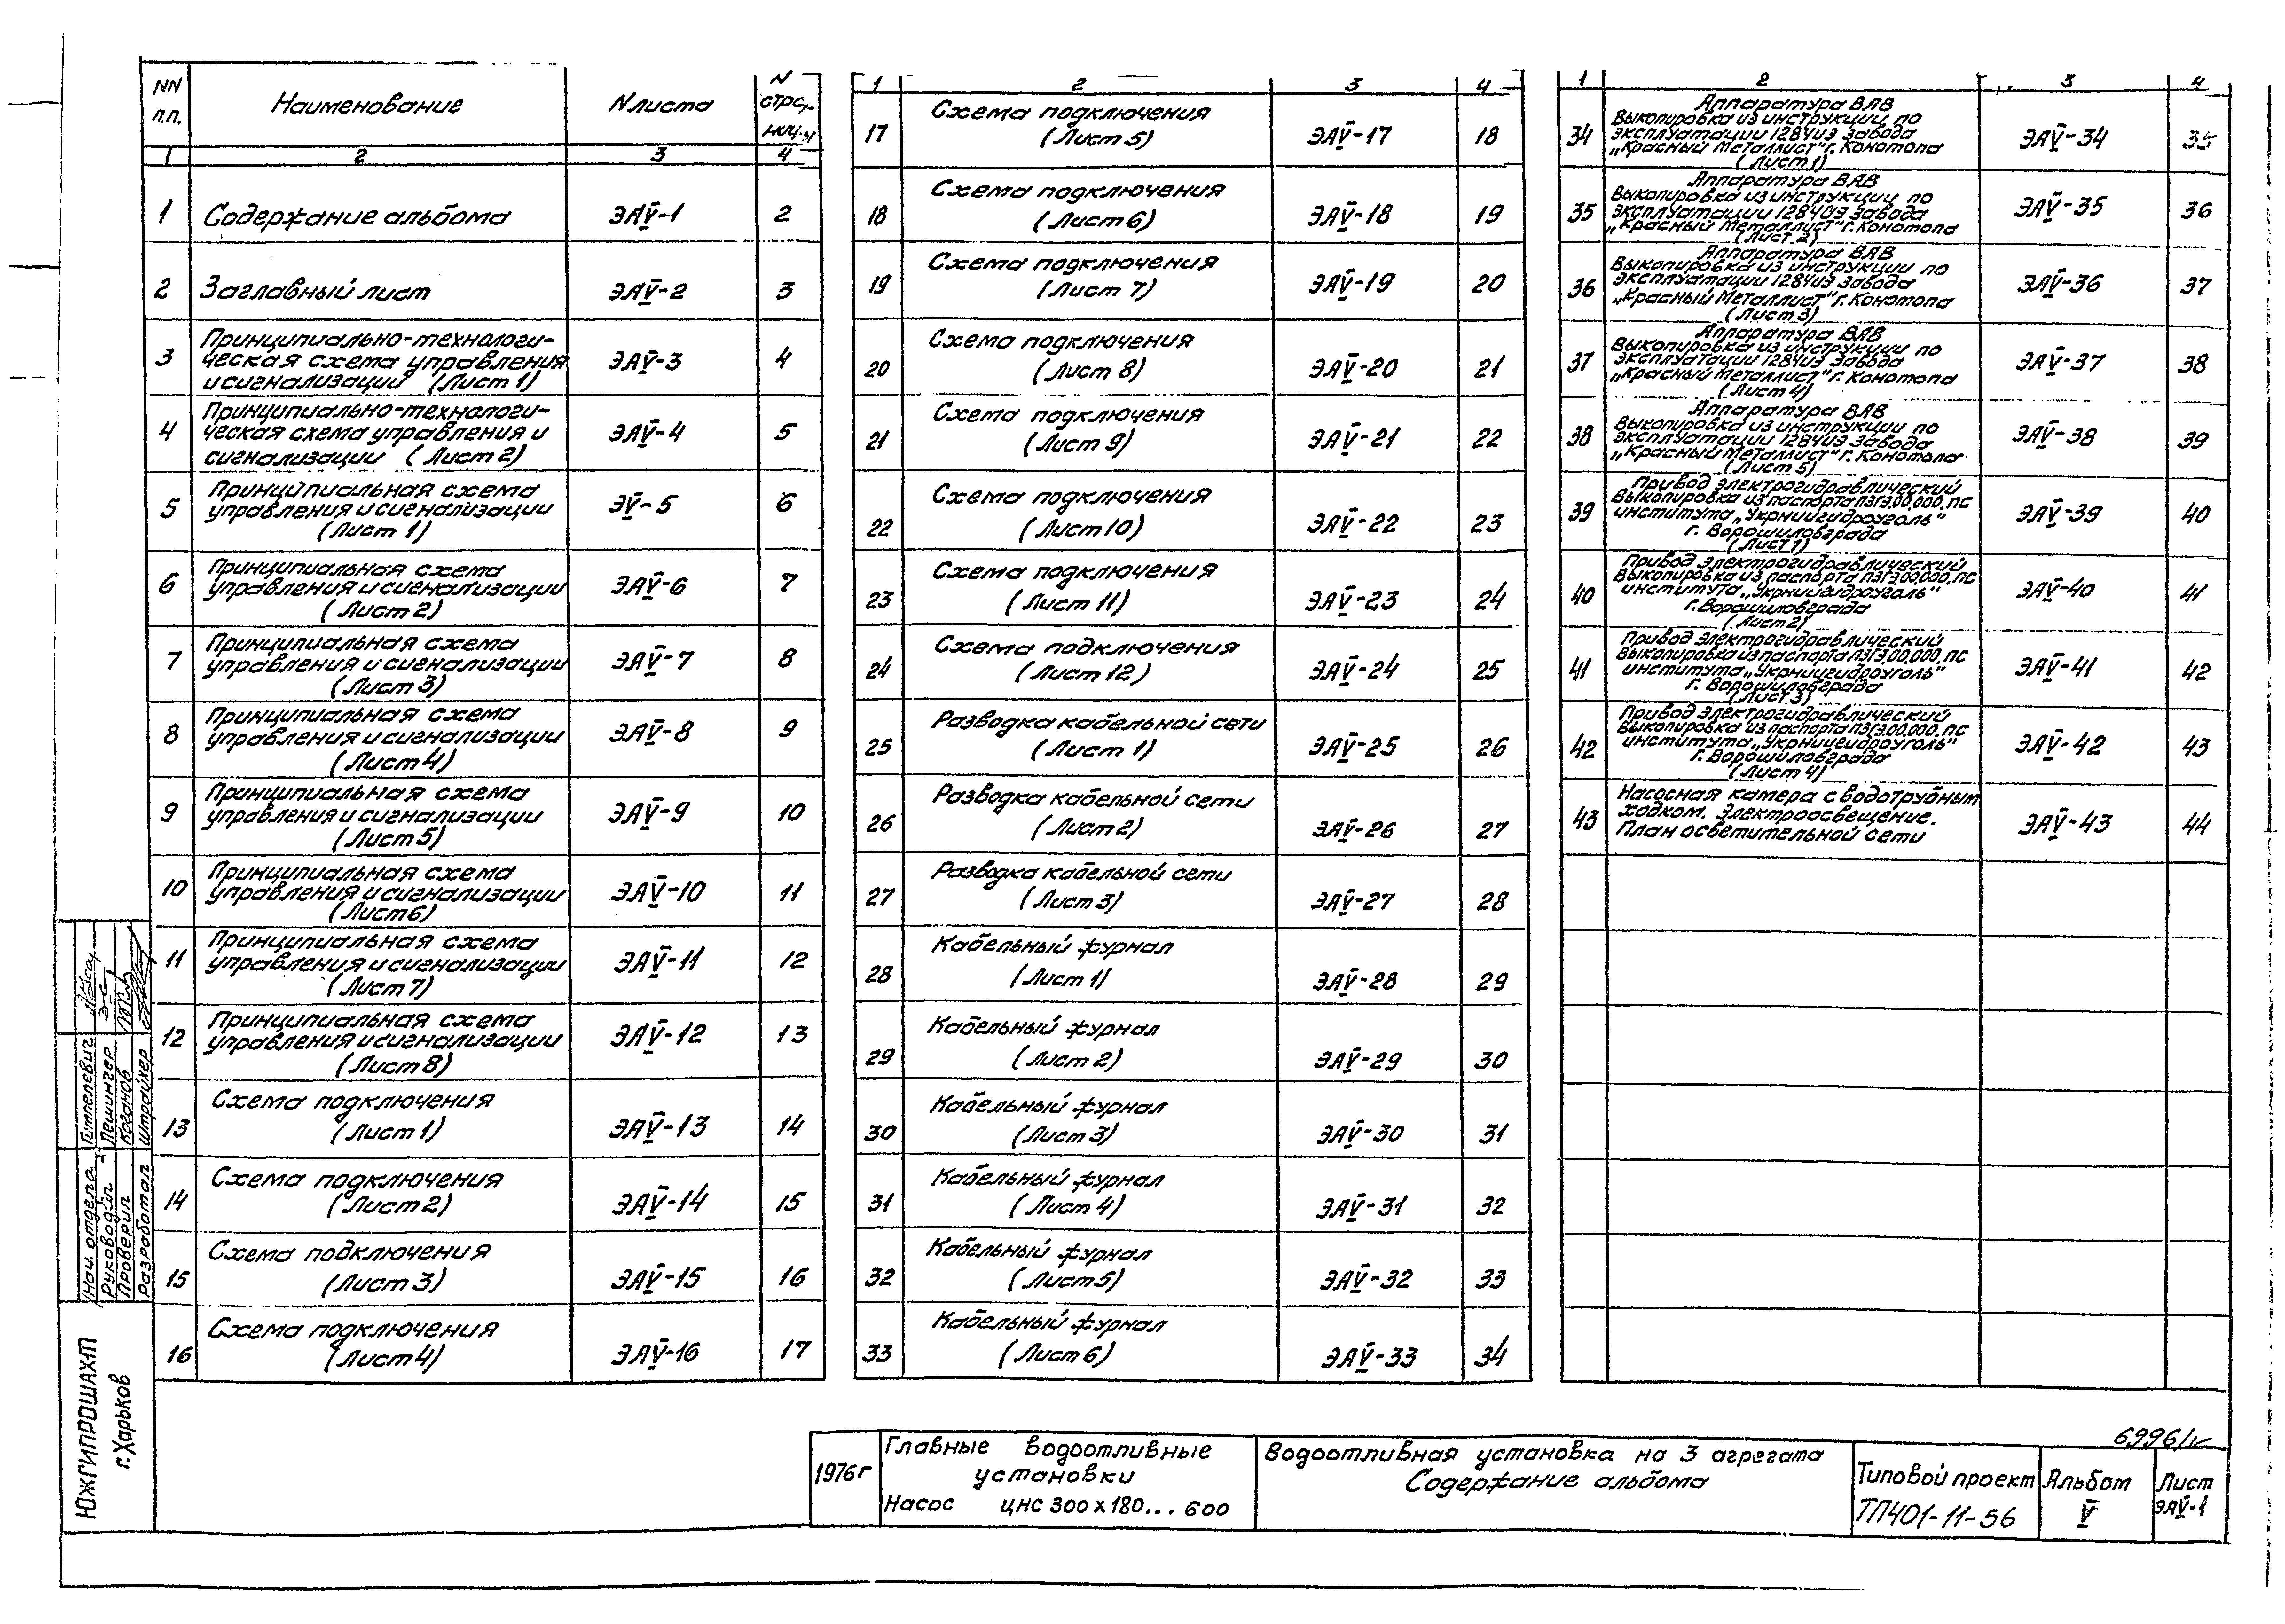 NN п.п. Наименование N листа N стра-ниц.ы
1 2 3 4
1 Содержание альбома ЭАV-1 2
2 Заглавный лист ЭАV-2 3
Принципиально-технологи-
3 ческая схема управления ЭАV-3 4
и сигнализации (Лист 1)
Принципиально-технологи-
4 ческая схема управления и ЭАV-4 5
сигнализации (Лист 2)
Принципиальная схема
5 управления и сигнализации ЭV-5 6
(Лист 1)
Принципиальная схема
6 управления и сигнализации ЭАV-6 7
(Лист 2)
Принципиальная схема
7 управления и сигнализации ЭАV-7 8
(Лист 3)
Принципиальная схема
8 управления и сигнализации ЭАV-8 9
(Лист 4)
Принципиальная схема
9 управления и сигнализации ЭАV-9 10
(Лист 5)
Принципиальная схема
10 управления и сигнализации ЭАV-10 11
(Лист 6)
Принципиальная схема
11 управления и сигнализации ЭАV-11 12
(Лист 7)
Принципиальная схема
12 управления и сигнализации ЭАV-12 13
(Лист 8)
Схема подключения
13 (Лист 1) ЭАV-13 14
Схема подключения
14 (Лист 2) ЭАV-14 15
Схема подключения
15 (Лист 3) ЭАV-15 16
Схема подключения
16 (Лист 4) ЭАV-16 17
1 2 3 4
Схема подключения
17 (Лист 5) ЭАV-17 18
Схема подключения
18 (Лист 6) ЭАV-18 19
Схема подключения
19 (Лист 7) ЭАV-19 20
Схема подключения
20 (Лист 8) ЭАV-20 21
Схема подключения
21 (Лист 9) ЭАV-21 22
Схема подключения
22 (Лист 10) ЭАV-22 23
Схема подключения
23 (Лист 11) ЭАV-23 24
Схема подключения
24 (Лист 12) ЭАV-24 25
Разводка кабельной сети
25 (Лист 1) ЭАV-25 26
Разводка кабельной сети
26 (Лист 2) ЭАV-26 27
Разводка кабельной сети
27 (Лист 3) ЭАV-27 28
Кабельный журнал
28 (Лист 1) ЭАV-28 29
Кабельный журнал
29 (Лист 2) ЭАV-29 30
Кабельный журнал
30 (Лист 3) ЭАV-30 31
Кабельный журнал
31 (Лист 4) ЭАV-31 32
Кабельный журнал
32 (Лист 5) ЭАV-32 33
Кабельный журнал
33 (Лист 6) ЭАV-33 34
1 2 3 4
Аппаратура ВАВ
Выкопировка из инструкции по
34 эксплуатации 1284из завода ЭАV-34 35
„Красный Металлист" г. Конотопа
(Лист 1)
Аппаратура ВАВ
Выкопировка из инструкции по
35 эксплуатации 1284из завода ЭАV-35 36
„Красный Металлист" г. Конотопа
(Лист 2)
Аппаратура ВАВ
Выкопировка из инструкции по
36 эксплуатации 1284из завода ЭАV-36 37
„Красный Металлист" г. Конотопа
(Лист 3)
Аппаратура ВАВ
Выкопировка из инструкции по
37 эксплуатации 1284из завода ЭАV-37 38
„Красный Металлист" г. Конотопа
(Лист 4)
Аппаратура ВАВ
Выкопировка из инструкции по
38 эксплуатации 1284из завода ЭАV-38 39
„Красный Металлист" г. Конотопа
(Лист 5)
Привод электрогидравлический
Выкопировка из паспорта ПЭГЭ.00.000.ПС
39 института „Укрниигидроуголь" ЭАV-39 40
г. Ворошиловграда
(Лист 1)
Привод электрогидравлический
Выкопировка из паспорта ПЭГЭ.00.000.ПС
40 института „Укрниигидроуголь" ЭАV-40 41
г. Ворошиловграда
(Лист 2)
Привод электрогидравлический
Выкопировка из паспорта ПЭГЭ.00.000.ПС
41 института „Укрниигидроуголь" ЭАV-41 42
г. Ворошиловграда
(Лист 3)
Привод электрогидравлический
Выкопировка из паспорта ПЭГЭ.00.000.ПС
42 института „Укрниигидроуголь" ЭАV-42 43
г. Ворошиловграда
(Лист 4)
Насосная камера с водотрубным
43 ходком. Электроосвещение. ЭАV-43 44
План осветительной сети
Нач. отдела Гитпелевич
Руководил Лешингер
Проверил Коганов
Разработал Штрайхер
ЮЖГИПРОШАХТ
г. Харьков
6996/V
1976г
Главные водоотливные
установки
Насос ЦНС 300х180...600
Водоотливная установка на 3 агрегата
Содержание альбома
Типовой проект
ТП401-11-56
Альбом
V
Лист
ЭАV-1